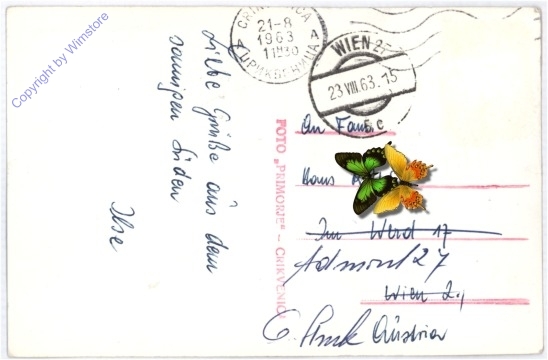 Copyright by Wimstore
CRIKVENICA
21-8
1963
11h30
A
ЦРИКВЕНИЦА A
WIEN 27
23.VIII.63.15
5c
Liebe Grüße aus dem
sonnigen Süden
Ilse
FOTO „PRIMORJE" - CRIKVENICA
An Familie
Hans
Im Werd 17
Admont 27
Wien 2.,
Austria